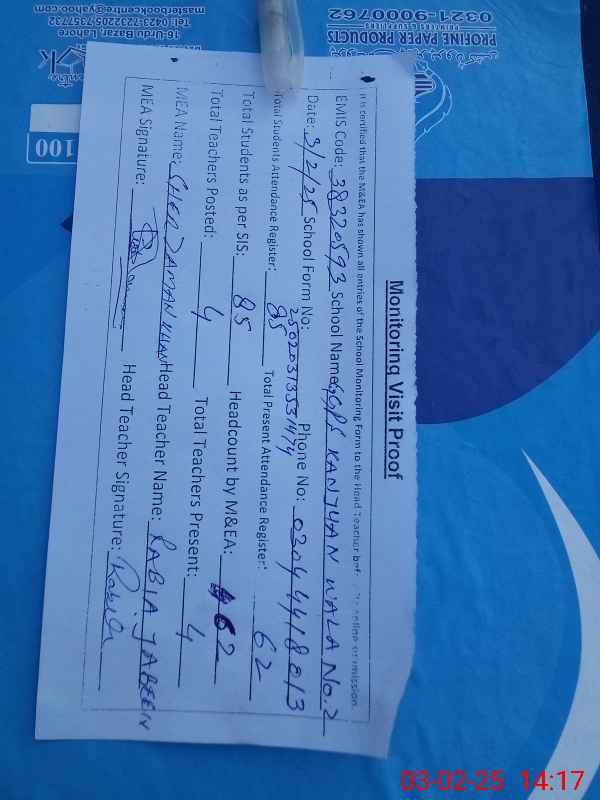 Monitoring Visit Proof
It is certified that the M&EA has shown all entries of the School Monitoring Form to the Head Teacher before online submission.
EMIS Code: 38320593 School Name: GGPS KANJUAN WALA No.2
Date: 3/2/25 School Form No: 25020313531474 Phone No: 03044418013
Total Students Attendance Register: 85 Total Present Attendance Register: 62
Total Students as per SIS: 85 Headcount by M&EA: 62
Total Teachers Posted: 4 Total Teachers Present: 4
MEA Name: SHER ZAMAN KHAN Head Teacher Name: RABIA JABEEN
MEA Signature: Head Teacher Signature: Rabia
PROFINE PAPER PRODUCTS
PRINTERS & SUPPLIERS
0321-9000762
16-Urdu Bazar, Lahore
Tel: 0423-7232205-7357732
masterbookcentre@yahoo.com
100
03-02-25 14:17